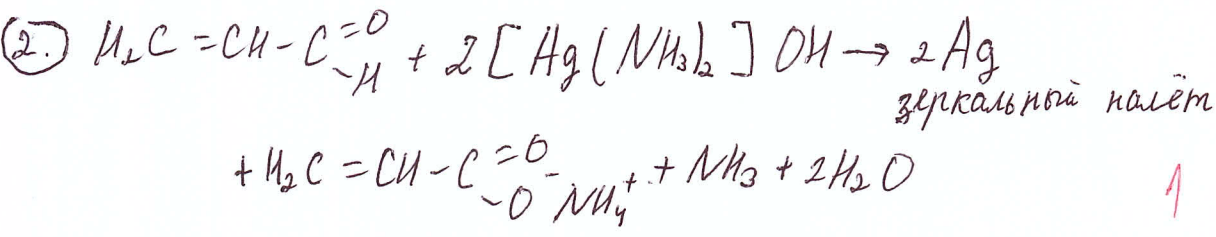 2. H₂C=CH-C=O-H + 2[Ag(NH₃)₂]OH → 2Ag
зеркальный налёт
+ H₂C=CH-C=O-O⁻NH₄⁺ + NH₃ + 2H₂O
1